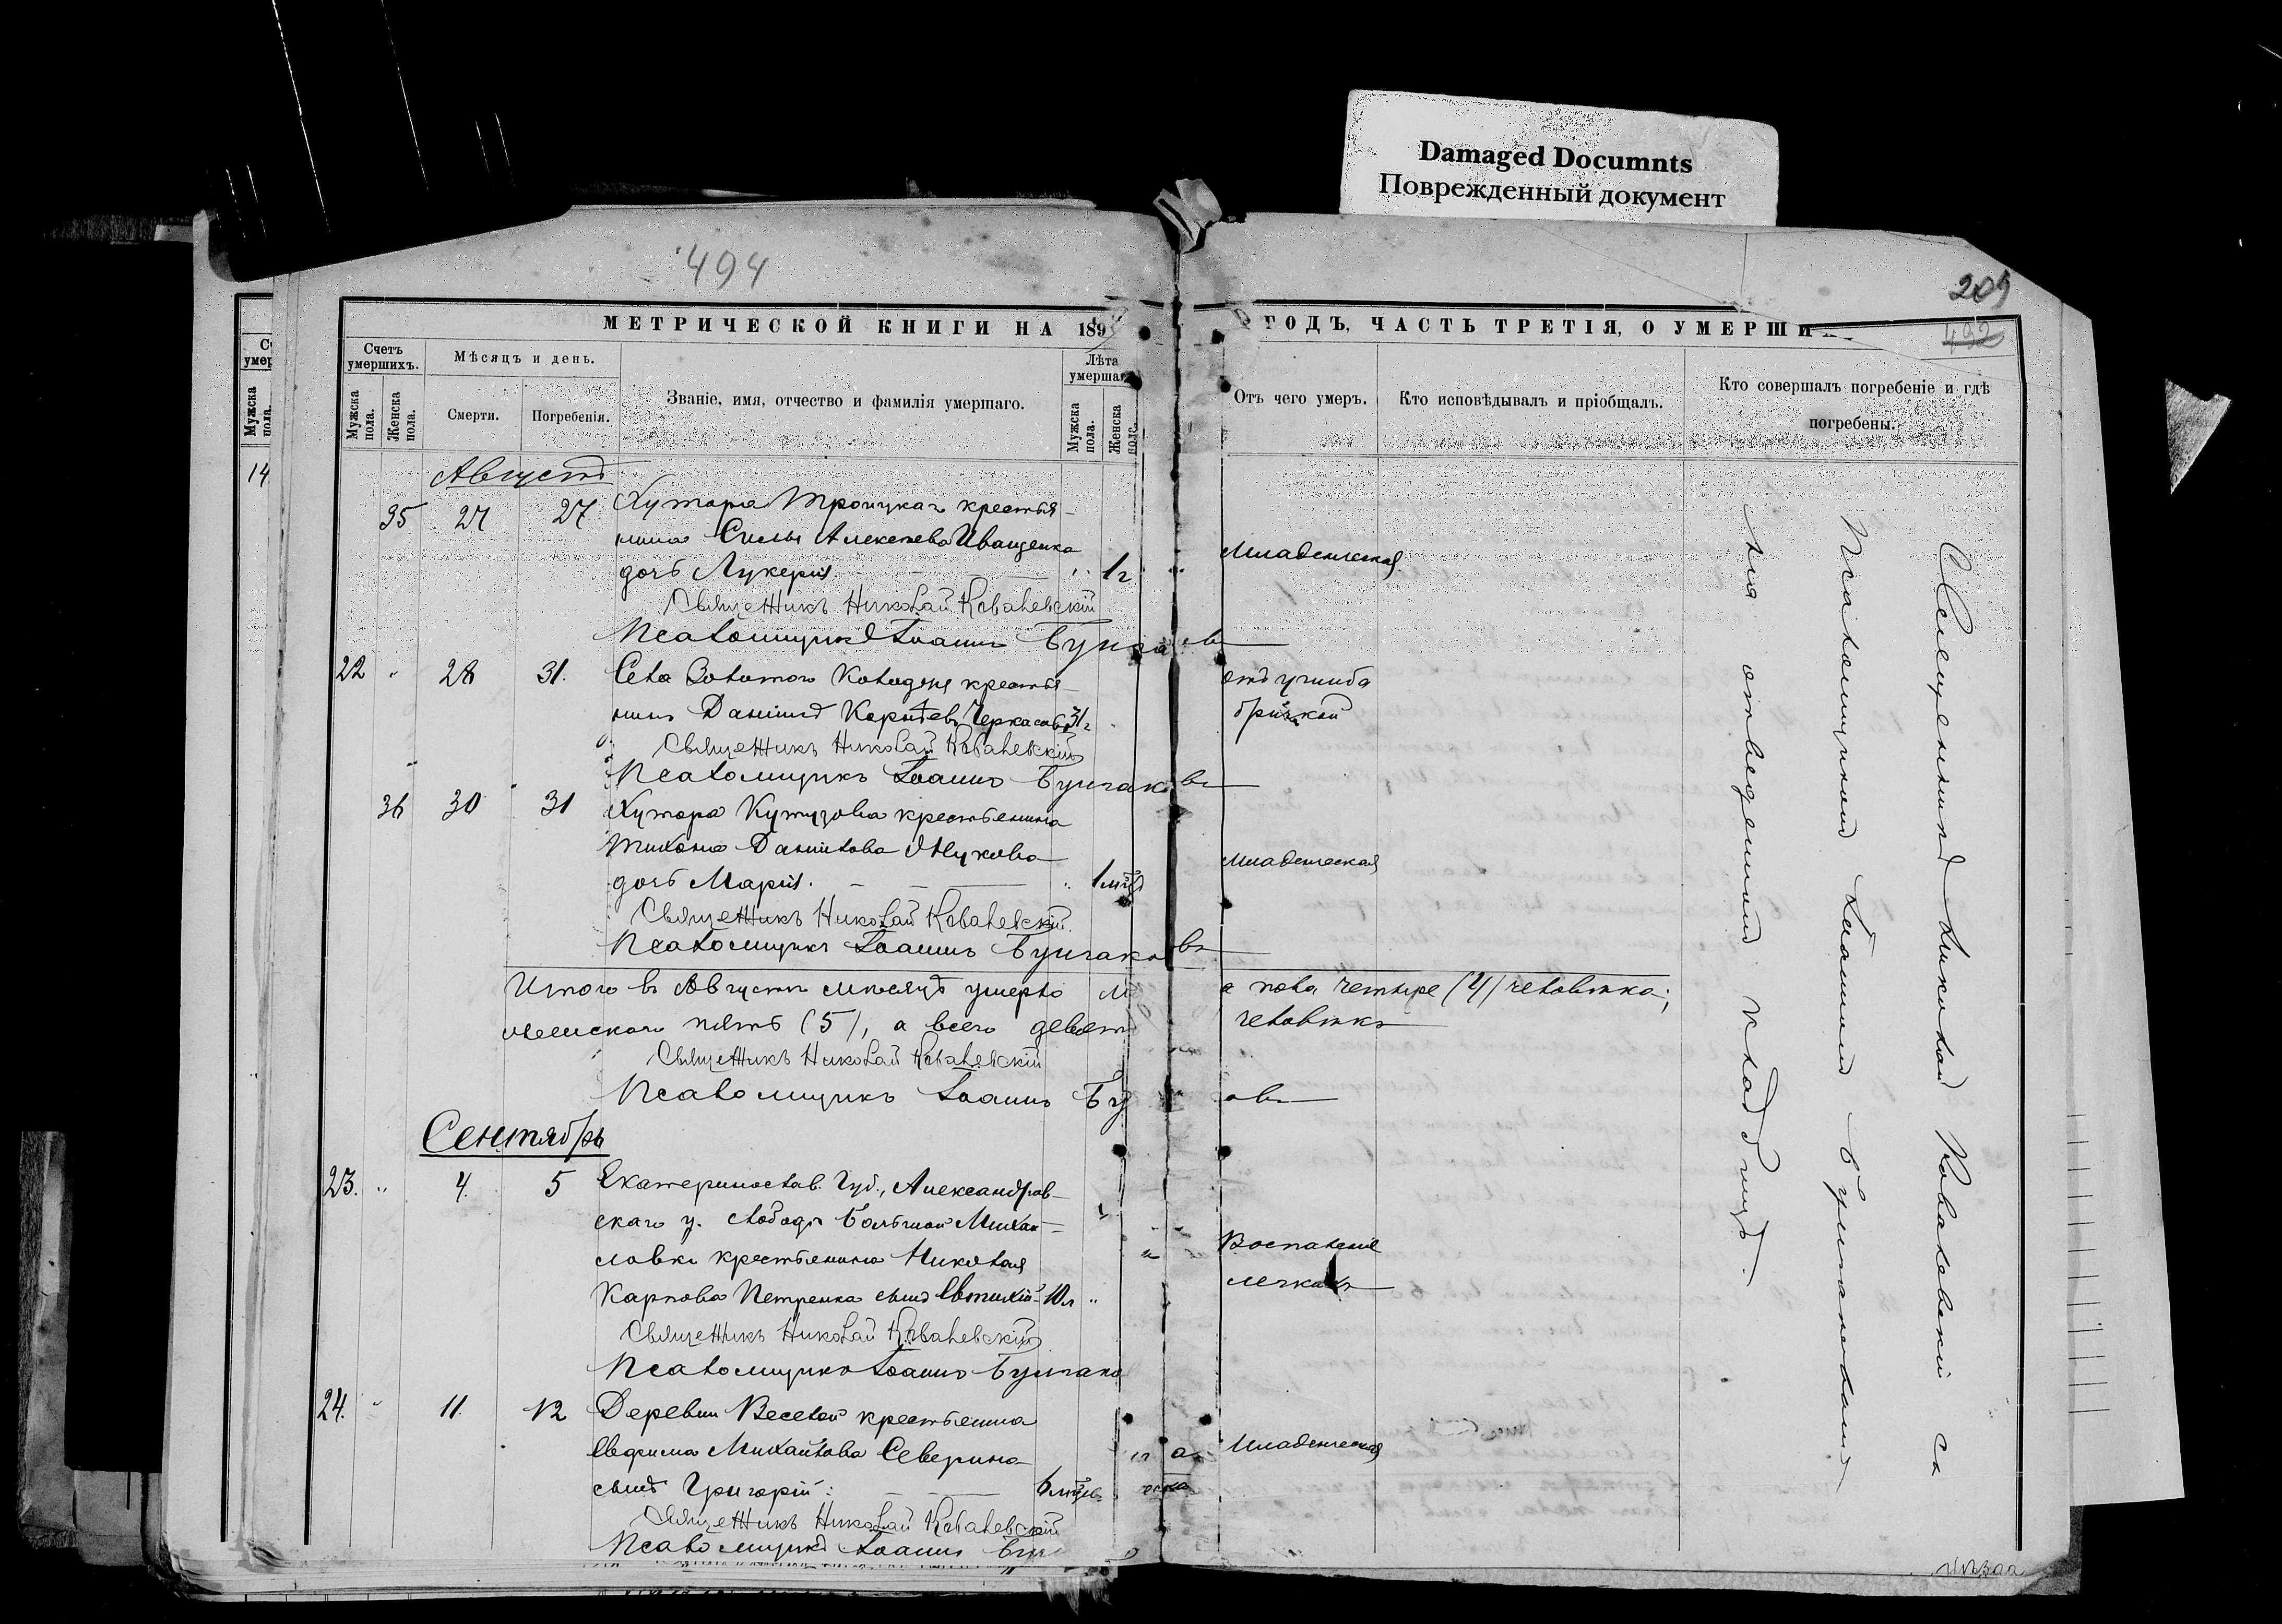 Damaged Documnts
Поврежденный документ
494
209
492
МЕТРИЧЕСКОЙ КНИГИ НА 189
ГОДЪ, ЧАСТЬ ТРЕТІЯ, О УМЕРШИ
Счетъ умершихъ.
Мѣсяцъ и день.
Званіе, имя, отчество и фамилія умершаго.
Лѣта
умершаг
Мужска пола.
Женска пола.
Смерти.
Погребенія.
Мужска пола.
Женска пола.
Отъ чего умеръ.
Кто исповѣдывалъ и пріобщалъ.
Кто совершалъ погребеніе и гдѣ
погребены.
14
Августъ
35 27 27 Хутора Троицкаго крестья-
нина Силы Алексѣева Иващенка
дочь Лукерія. 1 г. Младенческая
Священникъ Николай Ковалевскій
Псаломщикъ Іоаннъ
22 " 28 31. Села Золотого Колодезя крестья-
нинъ Даніилъ Черкасовъ 31 г. отъ ушиба
бричкой
Священникъ Николай Ковалевскій
Псаломщикъ Іоаннъ
36 30 31 Хутора Кутузова крестьянина
Тихона Данилова Жукова
дочь Марія. 1 мѣс. Младенческая
Священникъ Николай Ковалевскій.
Псаломщикъ Іоаннъ
Итого въ Августѣ мѣсяцѣ умерло м а пола четыре (4) человѣка;
женскаго пять (5), а всего девят человѣкъ
Священникъ Николай Ковалевскій
Псаломщикъ Іоаннъ
Сентябрь
23. " 4. 5 Екатеринослав. Губ., Александров-
скаго у. слободы Большой Михай-
ловки крестьянина Николая Воспаленіе
Карпова Петренка сынъ Евтихій 10 л. " легкихъ
Священникъ Николай Ковалевскій
Псаломщикъ Іоаннъ
24. " 11. 12 Деревни Веселой крестьянина
Евфима Михайлова Северина Младенческая
сынъ Григорій:
Священникъ Николай Ковалевскій
Псаломщикъ Іоаннъ
Священникъ Николай Ковалевскій съ
Псаломщикомъ Іоанномъ
на отведенномъ кладбищѣ.